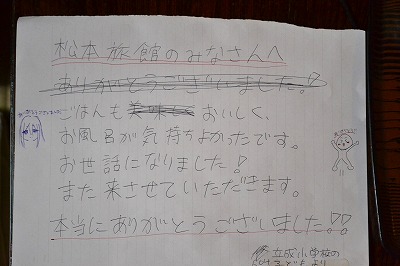 松本旅館のみなさんへ
ありがとうございました!
ごはんも美味しくおいしく、
お風呂が気持ちよかったです。
お世話になりました!
また来させていただきます。
本当にありがとうございました!!
立成小学校の
子どもより